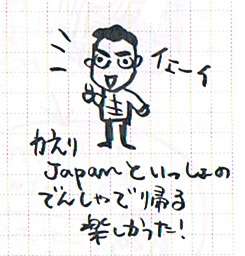 イェーイ
かえり
Japanといっしょの
でんしゃで帰る
楽しかった!